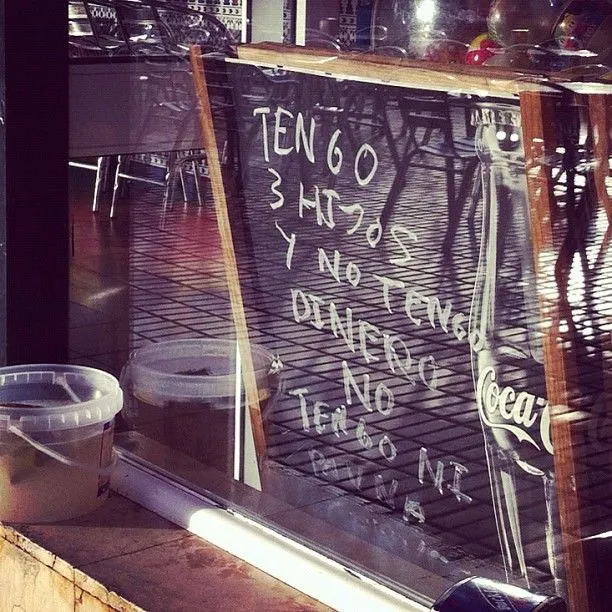 TENGO
3 HIJOS
Y NO TENGO
DINERO
NO
TENGO NI
Coca